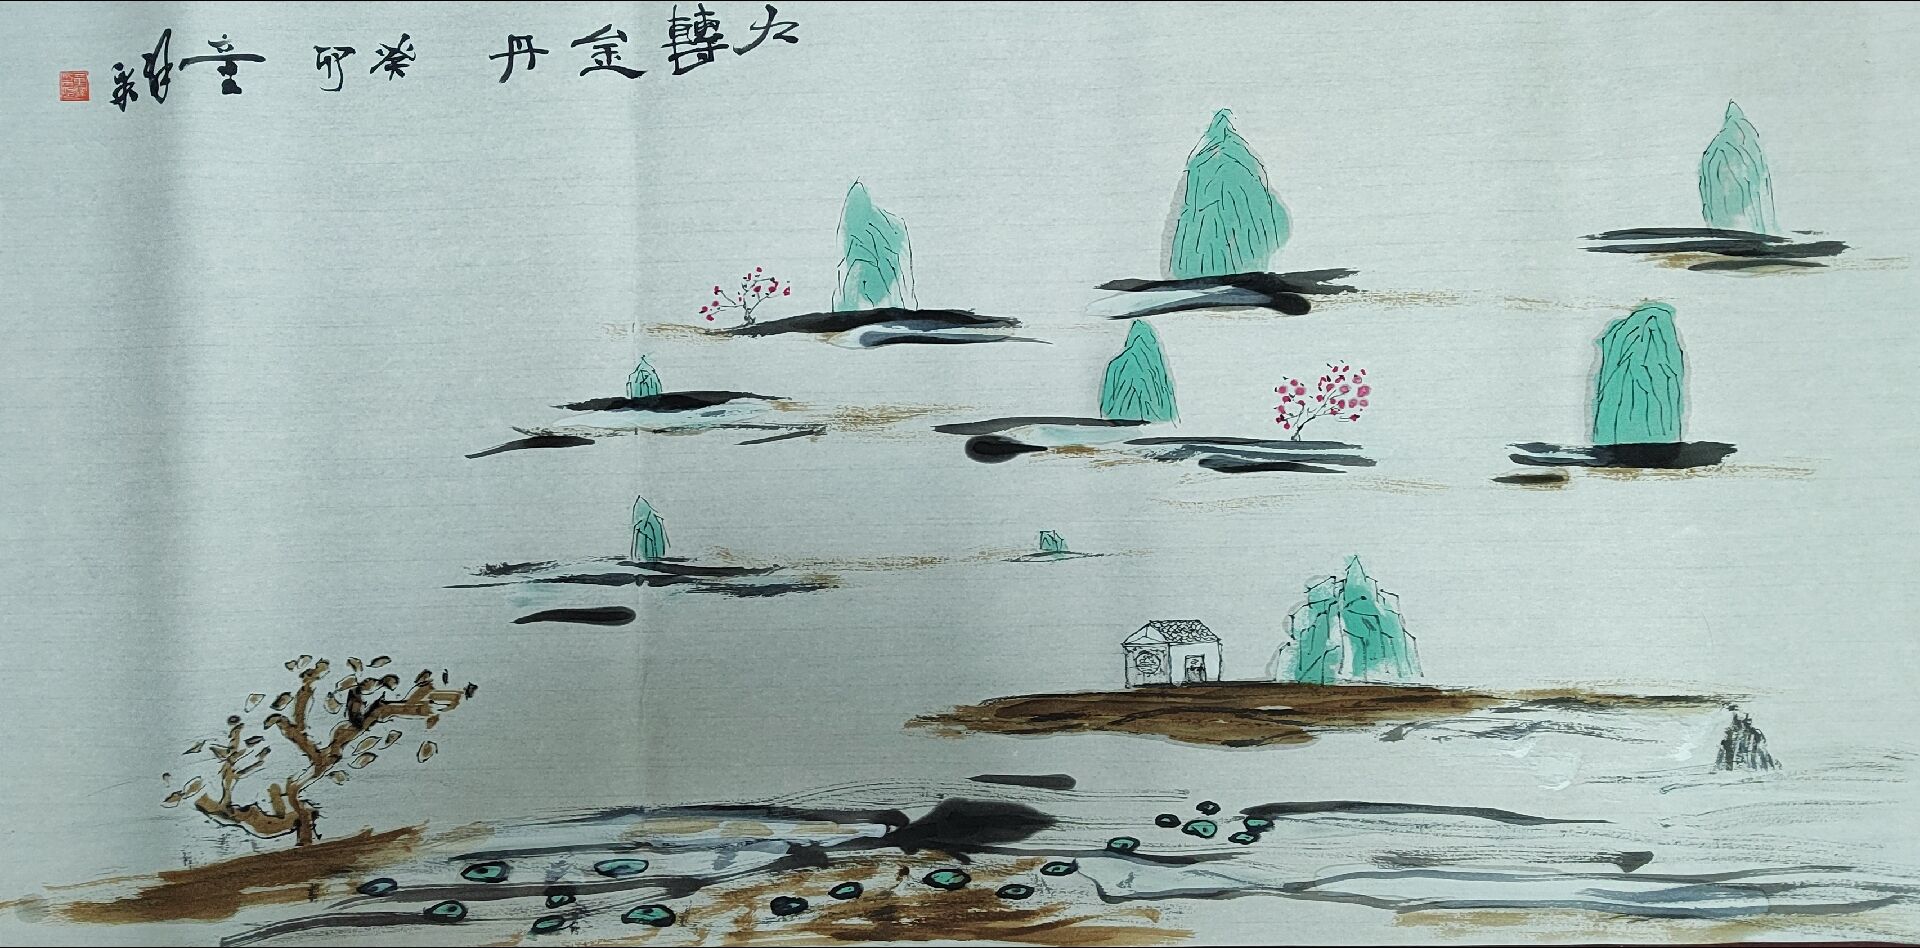 九轉金丹 癸卯 童